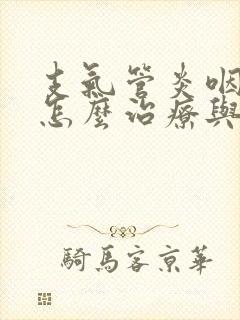 支氣管炎咽
怎麼治療與
騎馬客京華